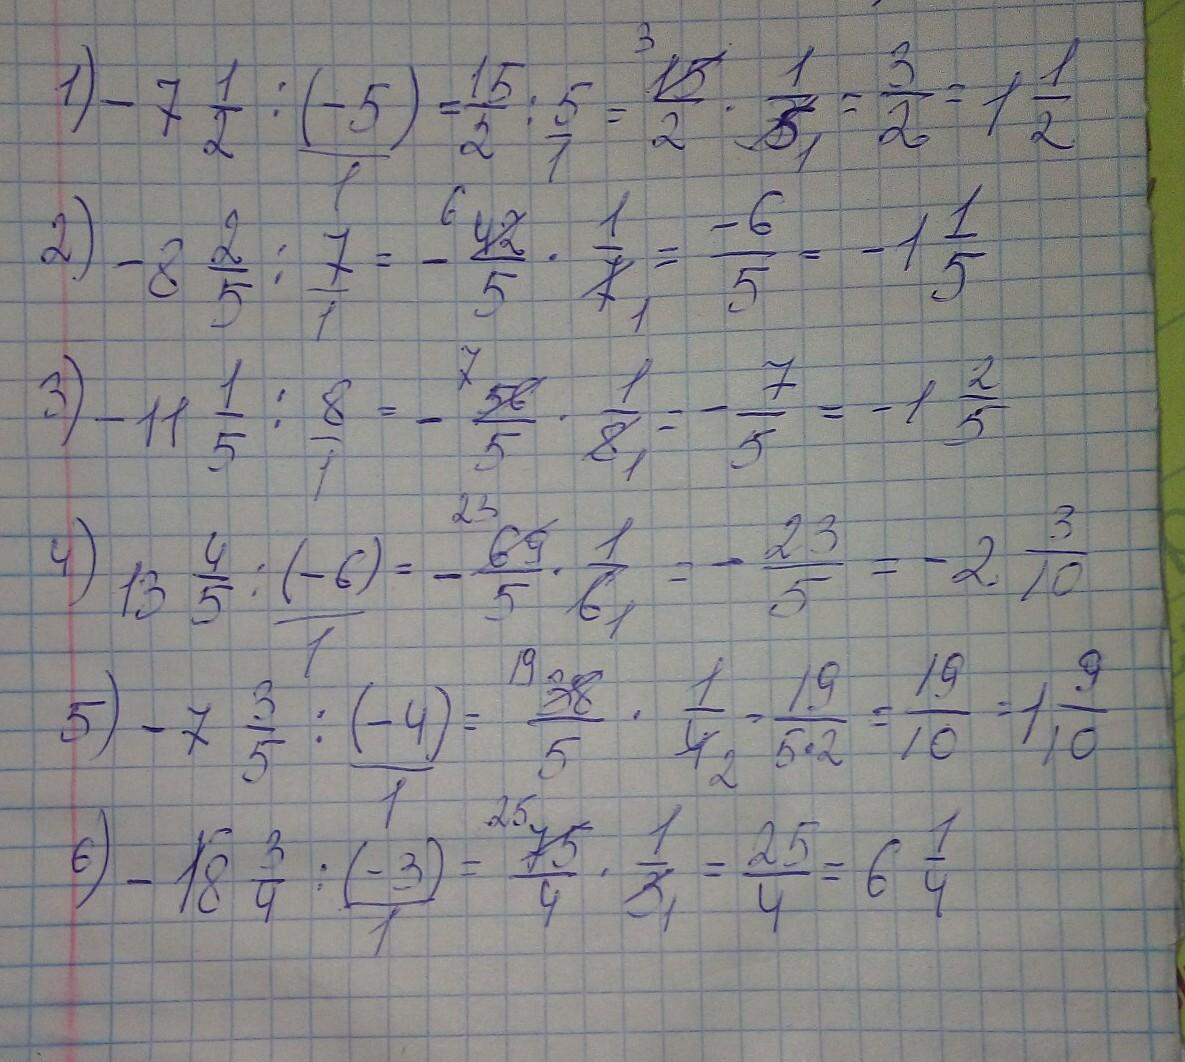 1) - 7 1/2 : (-5)/1 = 15/2 : 5/1 = 3 15/2 · 1/5 1 = 3/2 = 1 1/2
2) - 8 2/5 : 7/1 = - 6 42/5 · 1/7 1 = -6/5 = -1 1/5
3) - 11 1/5 : 8/1 = - 7 56/5 · 1/8 1 = - 7/5 = -1 2/5
4) 13 4/5 : (-6)/1 = - 23 69/5 · 1/6 1 = - 23/5 = -2 3/10
5) - 7 3/5 : (-4)/1 = 19 38/5 · 1/4 2 = 19/5·2 = 19/10 = 1 9/10
6) - 18 3/4 : (-3)/1 = 25 75/4 · 1/3 1 = 25/4 = 6 1/4